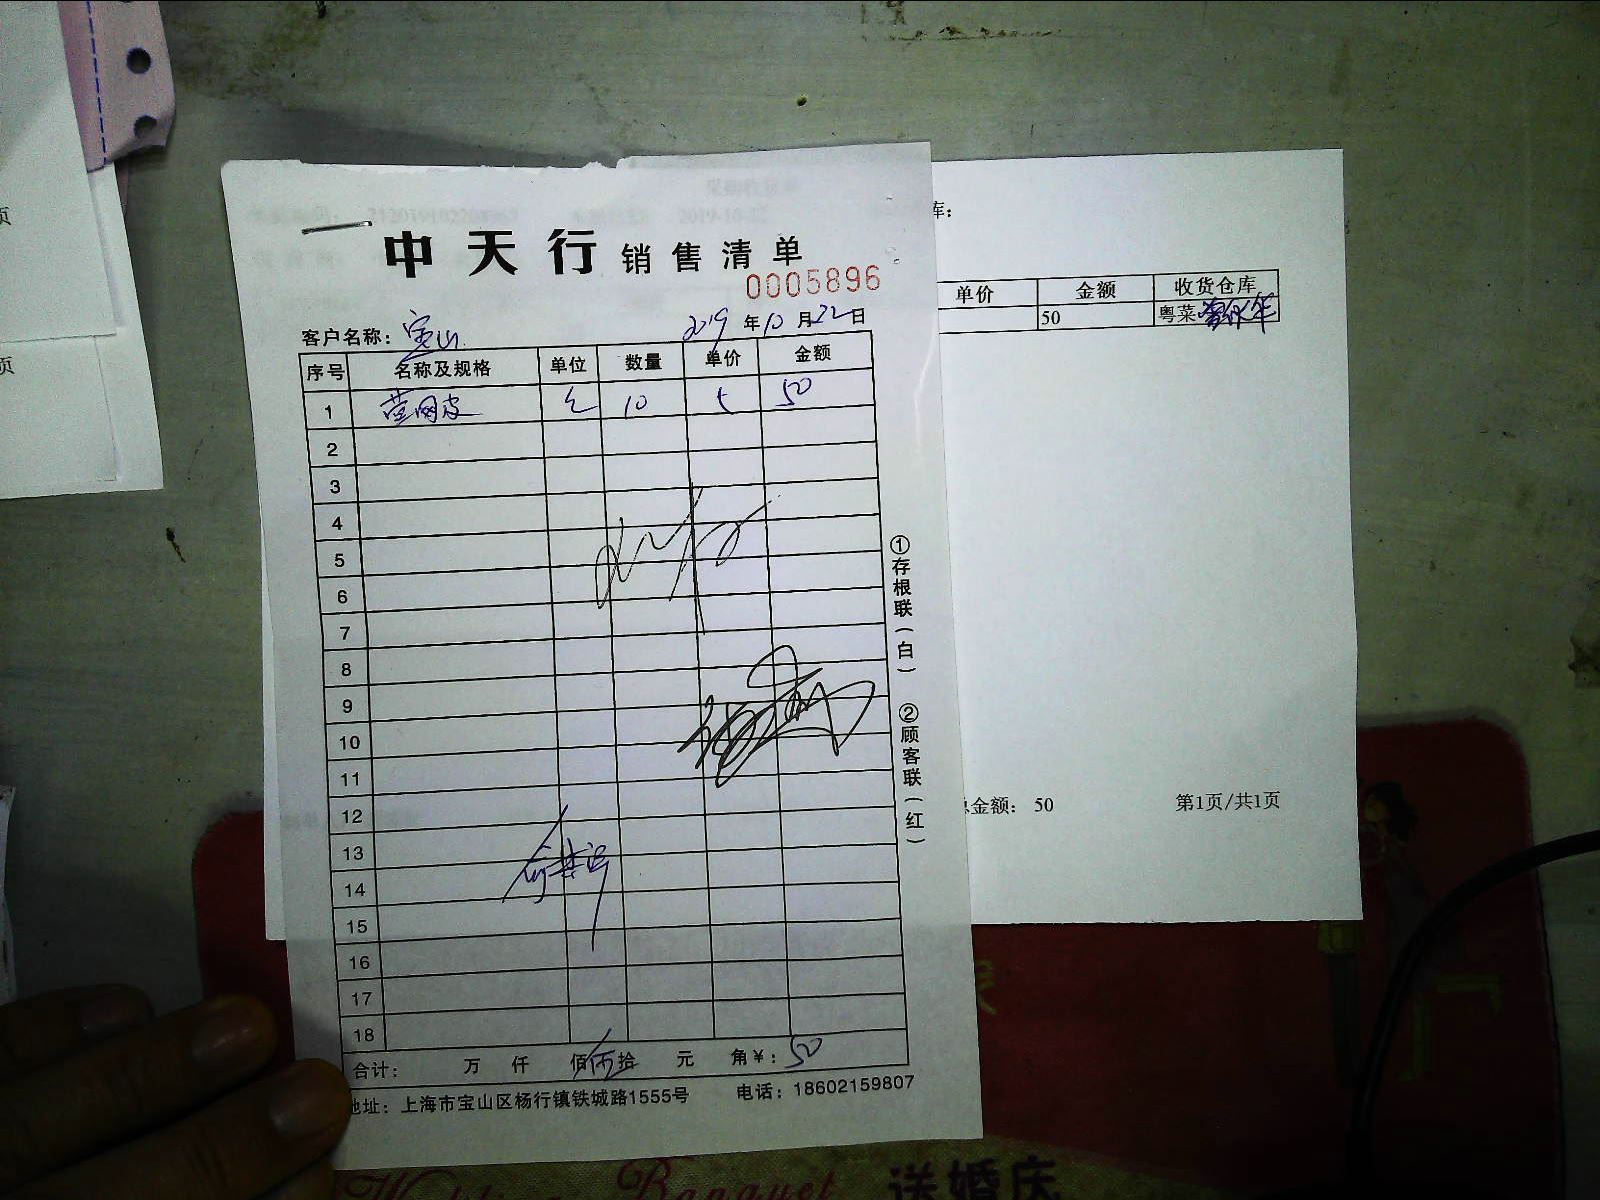 页
页
库：
中天行 销售清单
0005896
客户名称：宝山
2019年10月22日
序号 名称及规格 单位 数量 单价 金额
1 10 5 50
2
3
4
5
6
7
8
9
10
11
12
13
14
15
16
17
18
合计： 万 仟 佰 伍拾 元 角 ¥：50
地址：上海市宝山区杨行镇铁城路1555号 电话：18602159807
①存根联（白） ②顾客联（红）
单价 金额 收货仓库
50 粤菜
总金额： 50 第1页/共1页
Wedding Banquet 送婚庆